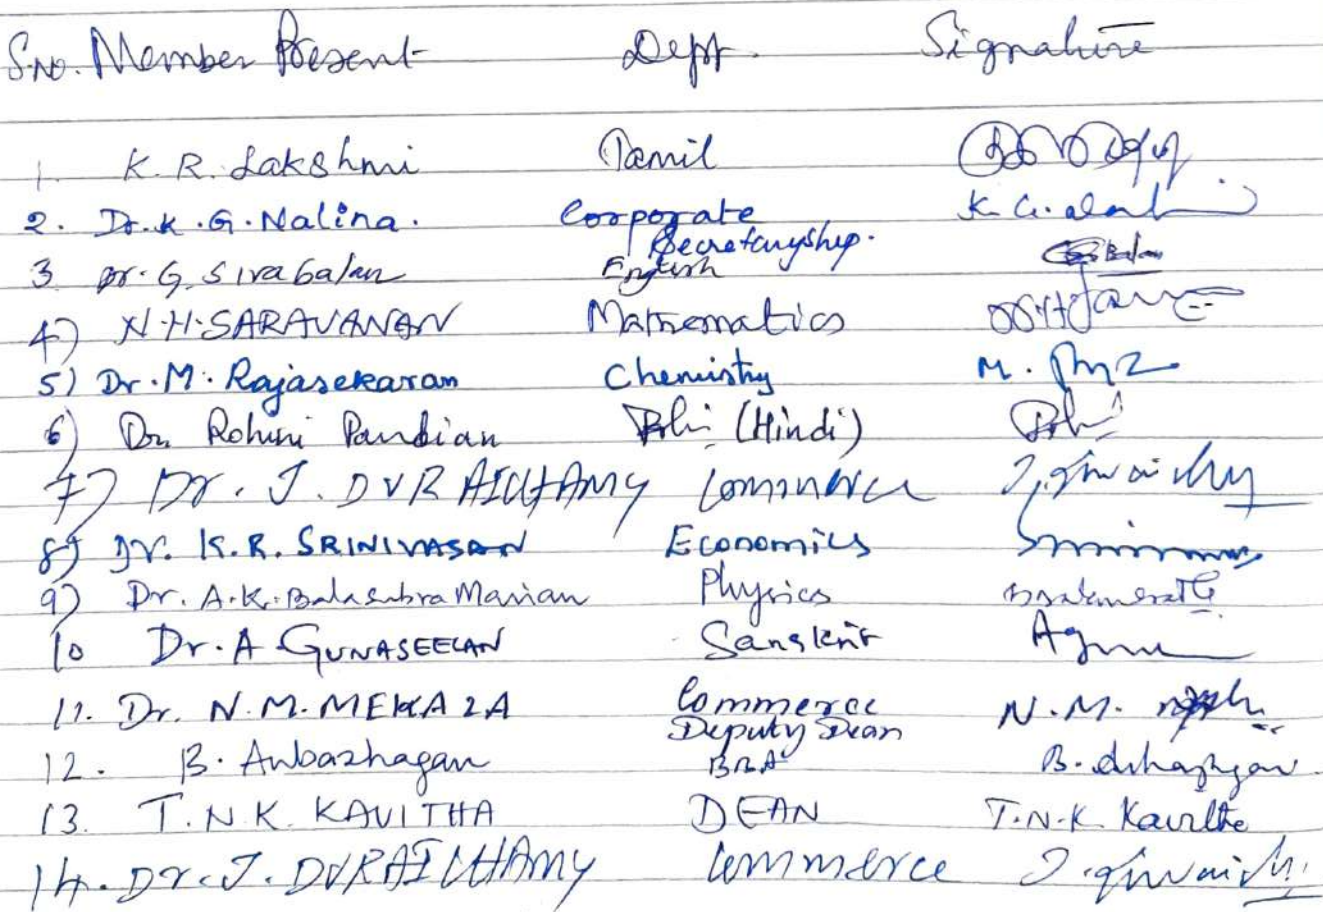 S.No. Member Present Dept. Signature
1. K. R. Lakshmi Tamil
2. Dr. K. G. Nalina. Corporate K. G.
Secretaryship.
3 Dr. G. Sivabalan English
4) N. H. SARAVANAN Mathematics
5) Dr. M. Rajasekaran Chemistry M.
6) Dr. Rohini Pandian (Hindi)
7) Dr. J. DURAICHAMY Commerce
8) Dr. K. R. SRINIVASAN Economics
9) Dr. A. K. Balasubra Manian Physics
10 Dr. A GUNASEELAN Sanskrit
11. Dr. N. M. MEKALA Commerce N. M.
Deputy Dean
12. B. Anbazhagan BBA B.
13. T. N. K. KAVITHA DEAN T. N. K. Kavitha
14. Dr. J. DURAICHAMY Commerce